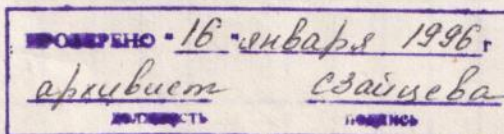 ПРОВЕРЕНО "16" января 1996 г
архивист СЗайцева
должность подпись